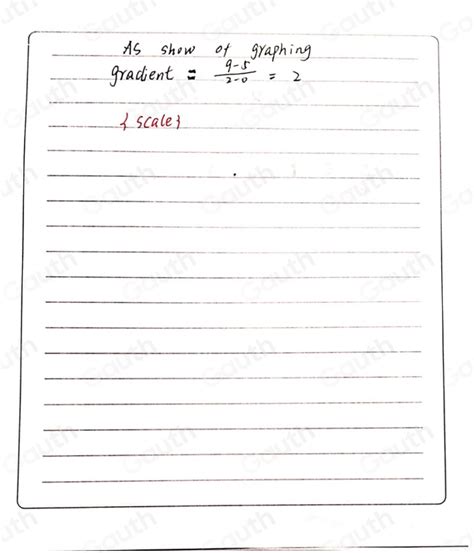 As show of graphing
gradient = 9-5/2-0 = 2
{scale}